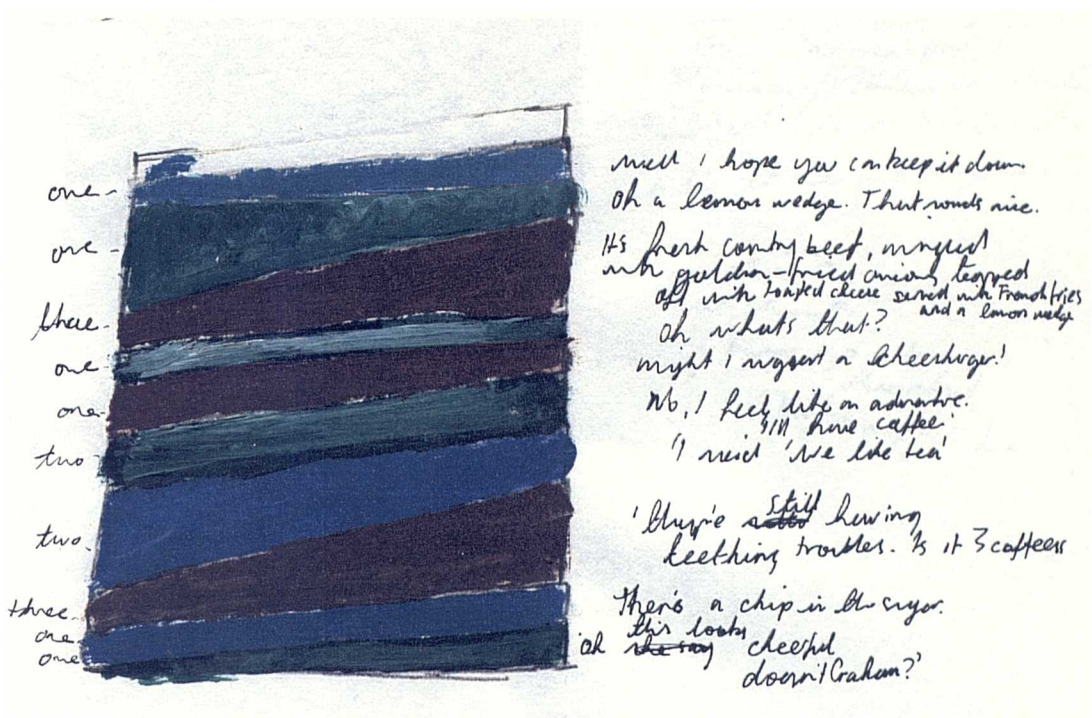 one
one
three
one
one
two
two
three
one
one
well I hope you can keep it down
Oh a lemon wedge. That sounds nice.
Its fresh country beef, minced
with golden-fried onions, topped
off with toasted cheese served with French fries
and a lemon wedge
Oh whats that?
might I suggest a Cheesburger!
No, I feel like an adventure.
'I'll have coffee'
'I said 'We like tea'
'they're still having
teething troubles. Is it 3 coffees
There's a chip in the sugar.
this looks
'Oh she say cheerful
doesn't Graham?'